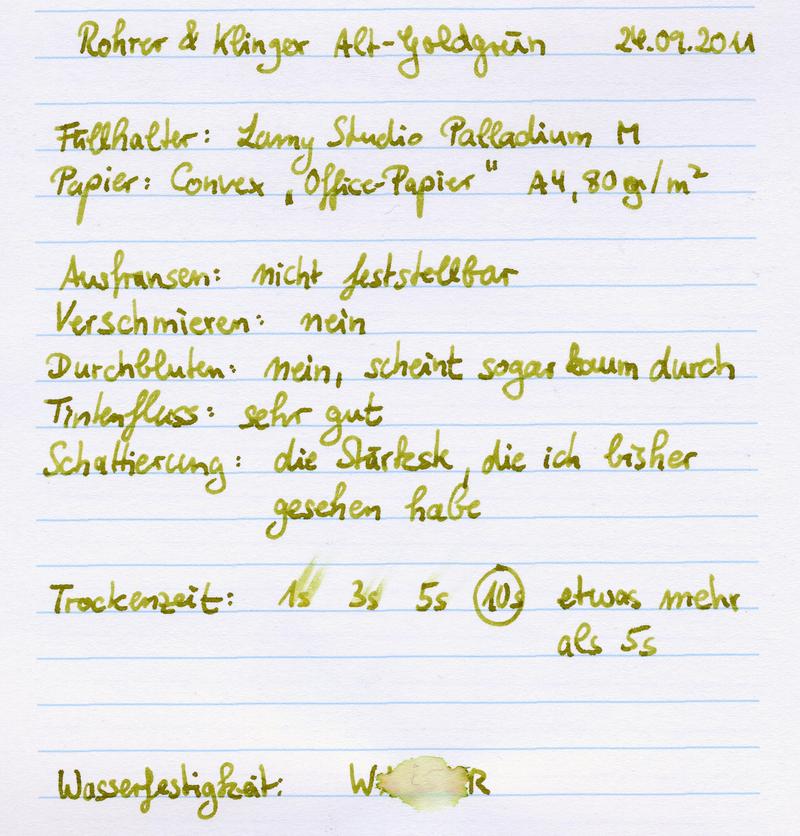 Rohrer & Klinger Alt-Goldgrün 24.09.2011
Füllhalter: Lamy Studio Palladium M
Papier: Convex „Office-Papier“ A4, 80 g/m²
Ausfransen: nicht feststellbar
Verschmieren: nein
Durchbluten: nein, scheint sogar kaum durch
Tintenfluss: sehr gut
Schattierung: die Stärkste, die ich bisher
gesehen habe
Trockenzeit: 1s 3s 5s 10s etwas mehr
als 5s
Wasserfestigkeit: